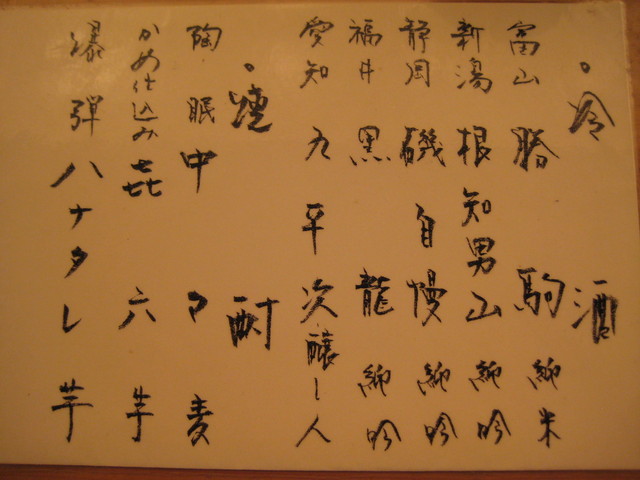 ・冷酒
富山 勝駒 純米
新潟 根知男山 純吟
静岡 磯自慢 純吟
福井 黒龍 純吟
愛知 九平次 醸し人
・焼酎
陶眠中々 麦
かめ仕込み 㐂六 芋
爆弾ハナタレ 芋